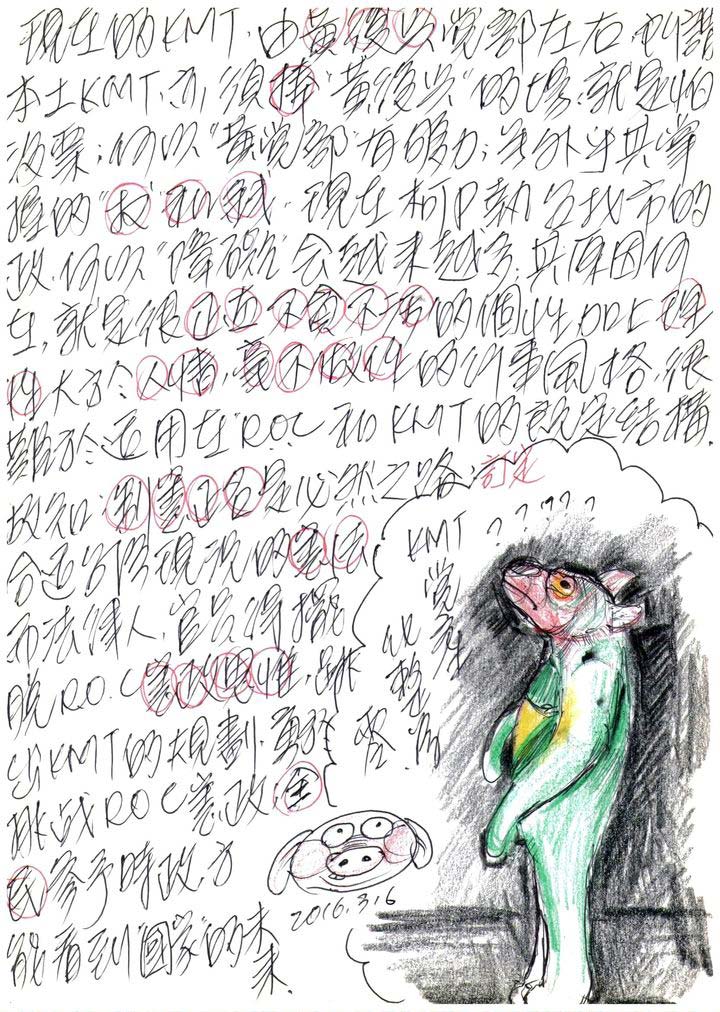 現在的KMT,由黃復興党部在右,所謂
本土KMT,亦須捧"黃復興"的場,就是怕
沒票;何以"黃党部"有能力;
握的"权"和錢,現在柯P執台北市的
政,何以"障礙"会越来越多,其原因何
在,就是很正直不貪不污的個性,加上理
性大於人情,毫不做作的行事風格,很
難於运用在R.O.C和KMT的既定結構.
故知:制憲正名是必然之路;訂定
合适台湾現況的憲法
而法律人,官員得擺
脱R.O.C憲政思惟,跳
出KMT的規劃,勇於
挑战ROC憲政,全
民參予時政,方
能看到"國家"的未
来.
KMT？？？？？
党产
整
零
2016.3.6